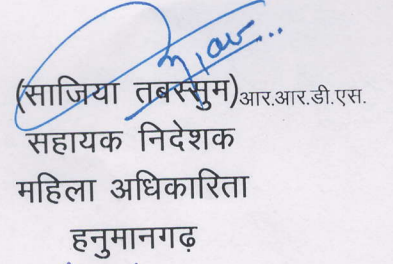 (साजिया तबस्सुम)आर.आर.डी.एस.
सहायक निदेशक
महिला अधिकारिता
हनुमानगढ़